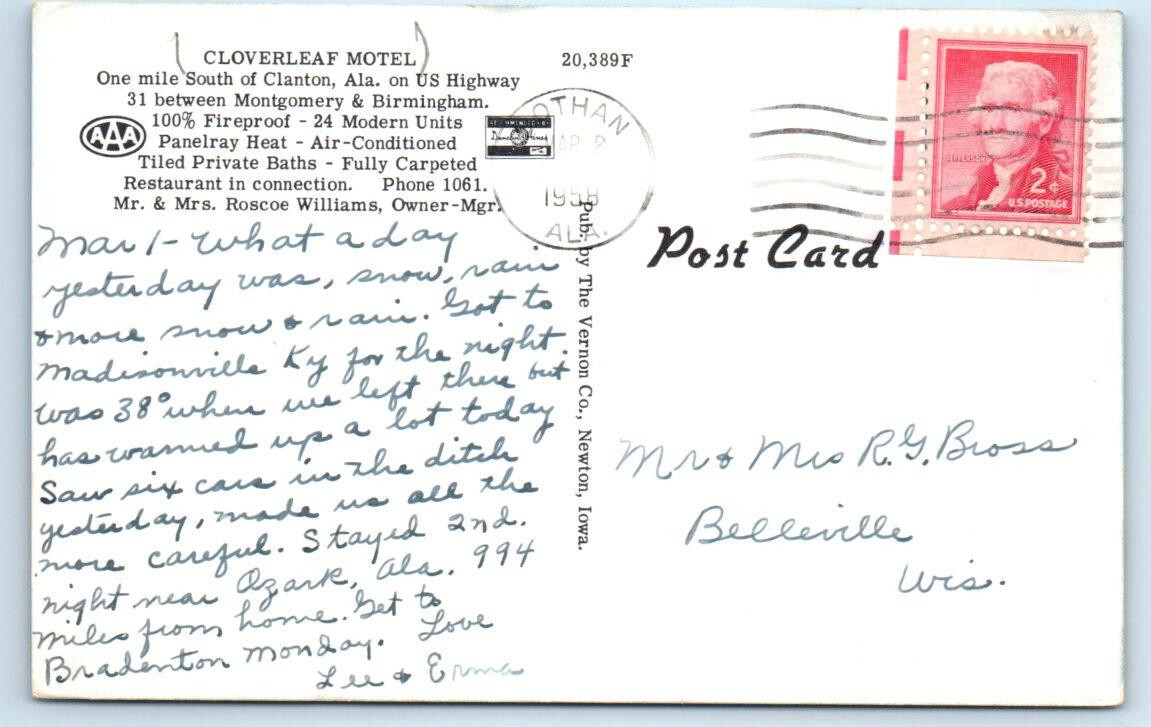 CLOVERLEAF MOTEL
One mile South of Clanton, Ala. on US Highway
31 between Montgomery & Birmingham.
100% Fireproof - 24 Modern Units
Panelray Heat - Air-Conditioned
Tiled Private Baths - Fully Carpeted
Restaurant in connection. Phone 1061.
Mr. & Mrs. Roscoe Williams, Owner-Mgr.
AAA
RECOMMENDED BY
Duncan Hines
20,389F
OTHAN
2
1958
ALA.
JEFFERSON
2¢
U.S. POSTAGE
Post Card
Pub. by The Vernon Co., Newton, Iowa.
Mar 1 - What a day
yesterday was, snow, rain
& more snow & rain. Got to
Madisonville Ky for the night.
Was 38° when we left there but
has warmed up a lot today
Saw six cars in the ditch
yesterday, made us all the
more careful. Stayed 2nd.
night near Ozark, Ala. 994
miles from home. Get to
Bradenton Monday. Love
Lee & Erma
Mr & Mrs R.G. Bross
Belleville
Wis.